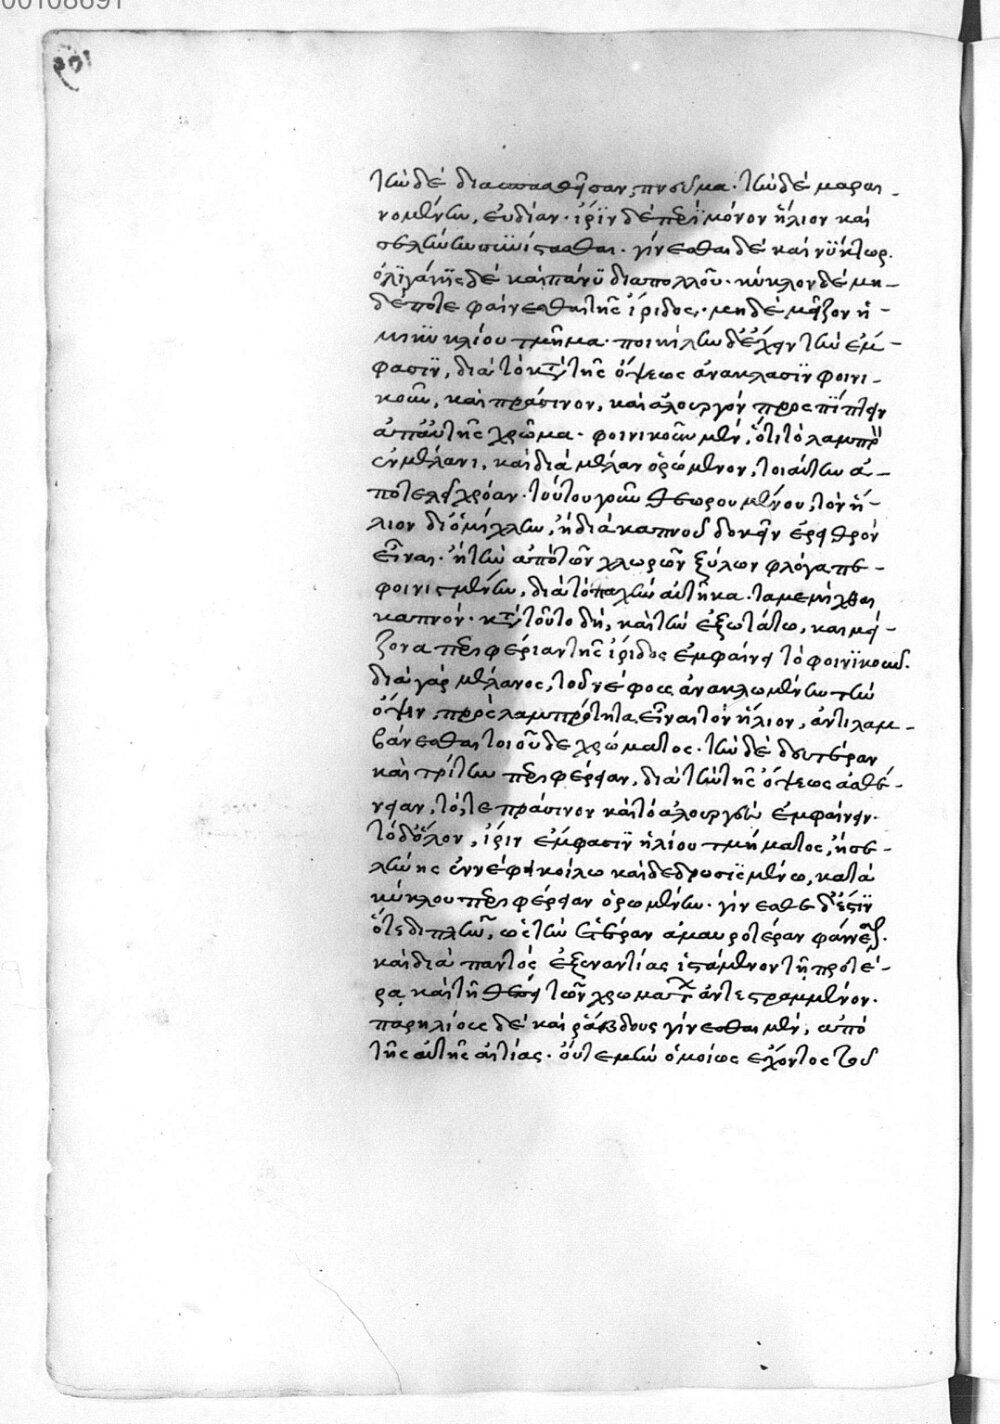 00108691
τὴν δὲ διασπασθεῖσαν, πνεῦμα· τὴν δὲ μαραι-
νομένην, εὐδίαν· ἶριν δὲ περὶ μόνον ἥλιον καὶ
σελήνην συνίστασθαι· γίνεσθαι δὲ καὶ νύκτωρ·
ὀλιγάκις δὲ καὶ πάνυ διαπολλοῦ· κύκλον δὲ μη-
δέποτε φαίνεσθαι τῆς ἴριδος, μηδὲ μεῖζον ἡ-
μικυκλίου τμῆμα· ποικίλην δὲ ἔχειν τὴν ἔμ-
φασιν, διὰ τὸ κατὰ τῆς ὄψεως ἀνάκλασιν φοινι-
κοῦν, καὶ πράσινον, καὶ ἁλουργὸν προσπίπτειν
ἀπ' αὐτῆς χρῶμα· φοινικοῦν μὲν, ὅτι τὸ λαμπρὸν
ἐν μέλανι, καὶ διὰ μέλαν ὁρώμενον, τοιαύτην ἀ-
ποτελεῖ χρόαν· τούτου γοῦν θεωρουμένου, τὸν ἥ-
λιον δι' ὁμίχλην, ἢ διὰ καπνοῦ δοκεῖν ἐρυθρὸν
εἶναι· ἢ τὴν ἀπὸ τῶν χλωρῶν ξύλων φλόγα πε-
φοινισμένην, διὰ τὸ παχὺν αὐτῆκα· ταμεμίχθαι
καπνόν· κατὰ τοῦτο δὴ, καὶ τὴν ἐξωτάτω, καὶ μεί-
ζονα περιφέρειαν τῆς ἴριδος ἐμφαίνει τὸ φοινικοῦν·
διὰ γὰρ μέλανος, τοῦ νέφους ἀνακλωμένην τὴν
ὄψιν, πρὸς λαμπρότητα, εἶναι τὸν ἥλιον, ἀντιλαμ-
βάνεσθαι τοιοῦδε χρώματος· τὴν δὲ δευτέραν
καὶ τρίτην περιφέρειαν, διὰ τὴν τῆς ὄψεως ἀσθέ-
νειαν, τό, τε πράσινον καὶ τὸ ἁλουργὸν ἐμφαίνειν·
τὸ δ' ὅλον, ἶριν ἔμφασιν ἡλίου τμήματος, ἢ σε-
λήνης ἐν νέφει κοίλω καὶ δεδροσισμένω, κατὰ
κύκλου περιφέρειαν ὁρωμένην· γίνεσθαι δ' ἔστιν
ὅτε διπλῆν, ὡς τὴν ἑτέραν ἀμαυροτέραν φαίνεσθαι·
καὶ διὰ παντὸς ἐξεναντίας ἱστάμενον τῇ προτέ-
ρα, καὶ τῇ θέσει τῶν χρωμάτων ἀντεστραμμένον·
παρηλίους δὲ καὶ ῥάβδους γίνεσθαι μὲν, ἀπὸ
τῆς αὐτῆς αἰτίας· οὔτε μὴν ὁμοίως ἔχοντος τοῦ